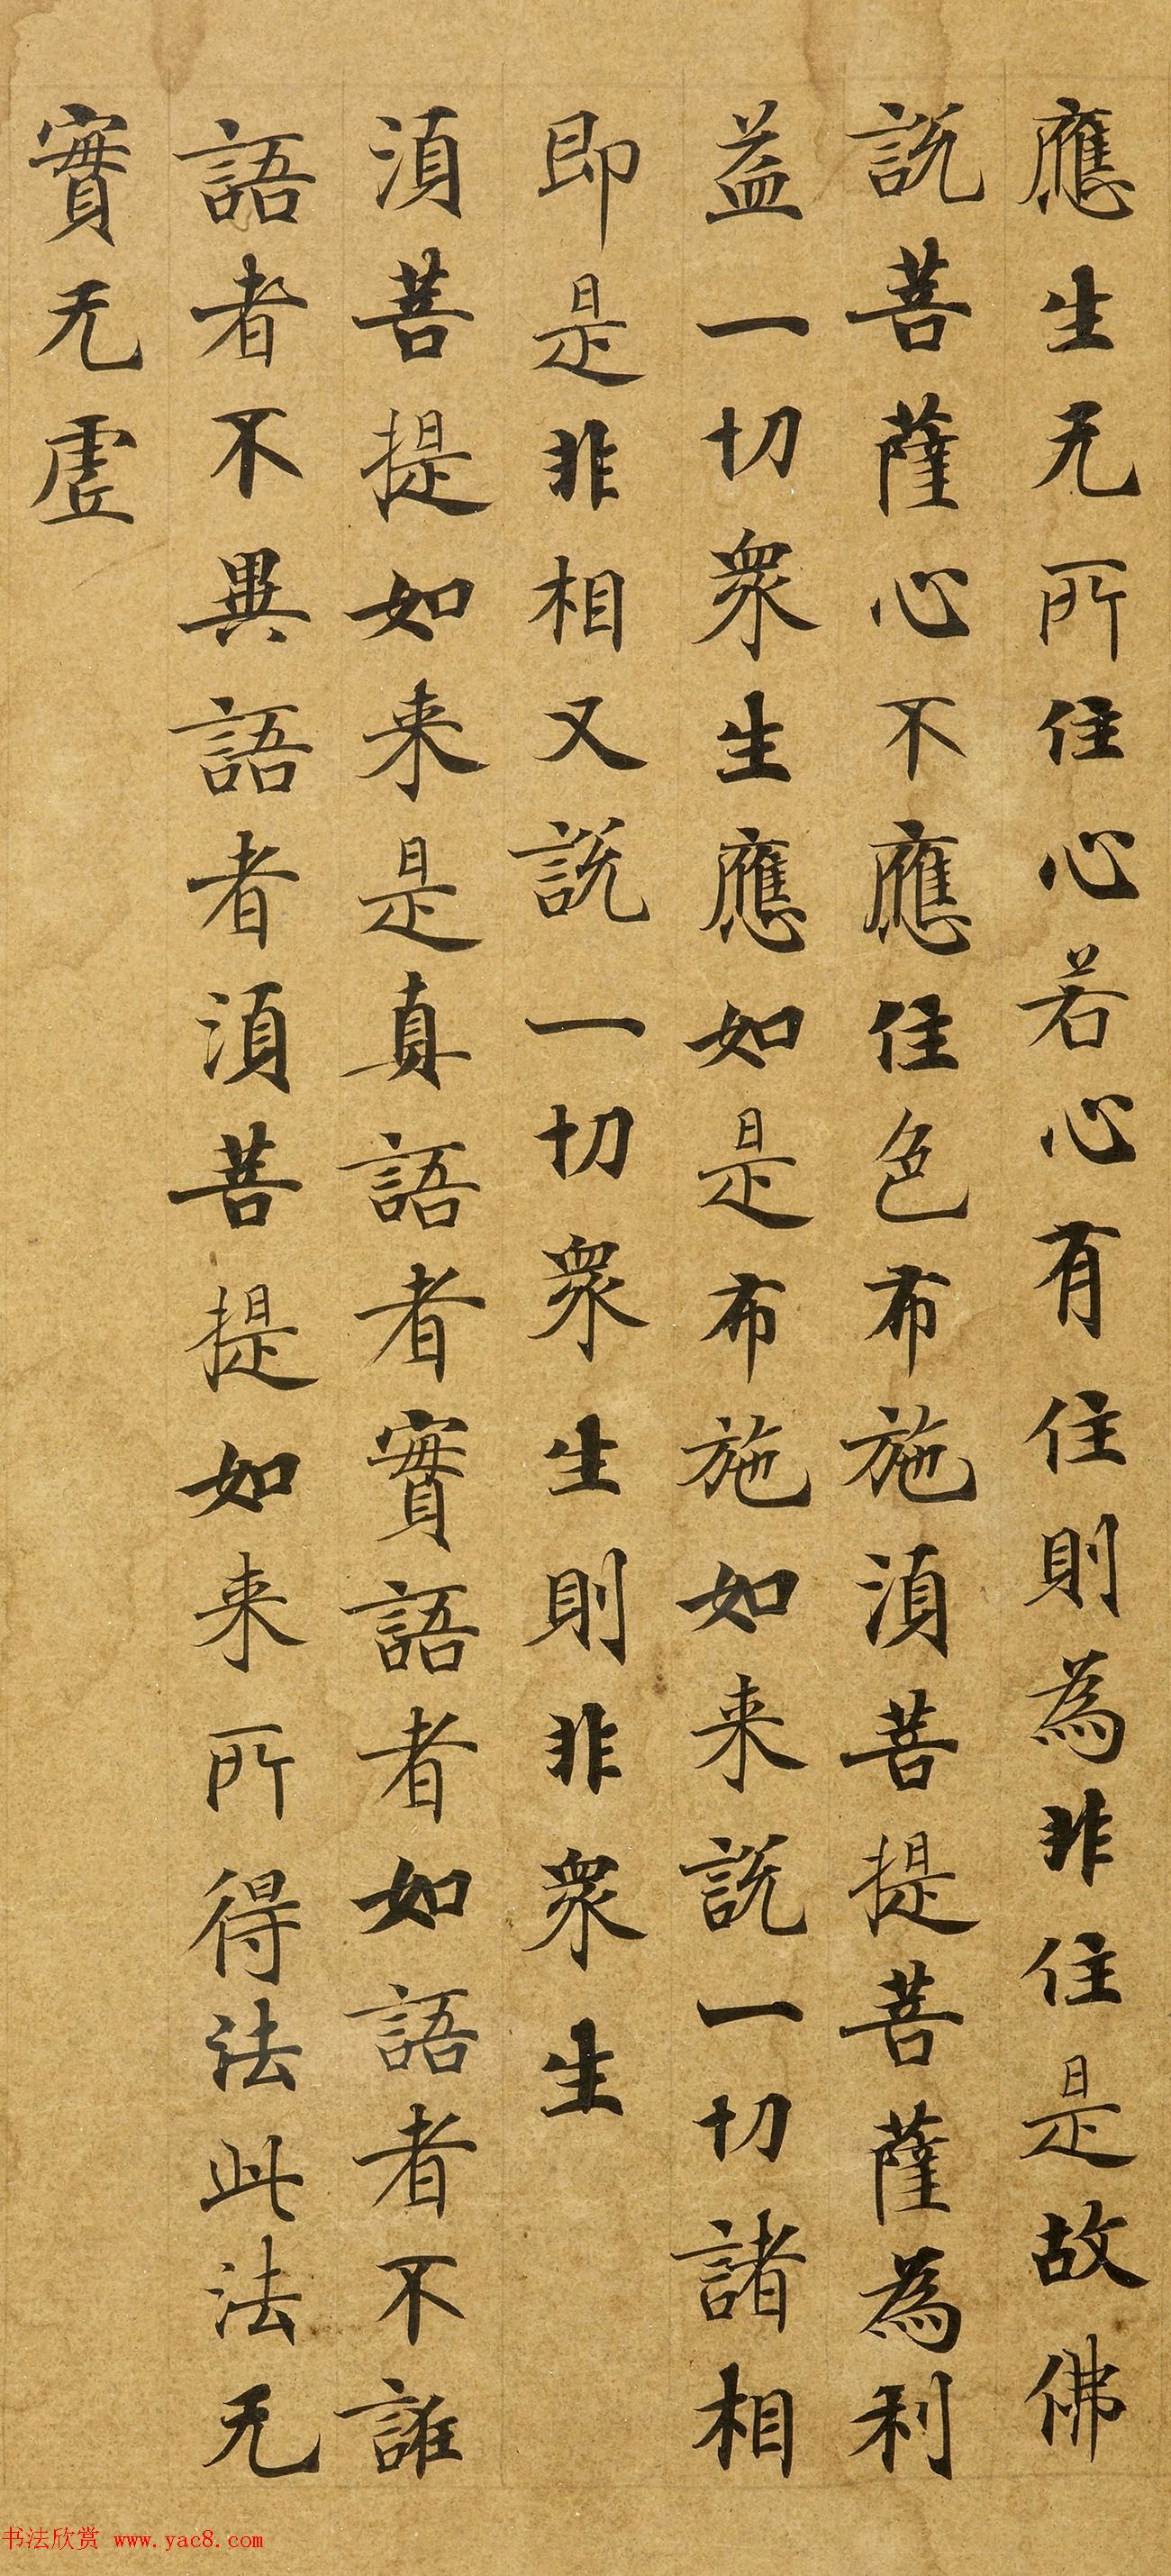 應生无所住心若心有住則為非住是故佛
説菩薩心不應住色布施湏菩提菩薩為利
益一切衆生應如是布施如来説一切諸相
即是非相又説一切衆生則非衆生
湏菩提如来是真語者實語者如語者不誰
語者不異語者湏菩提如来所得法此法无
實无虗
书法欣赏 www.yac8.com